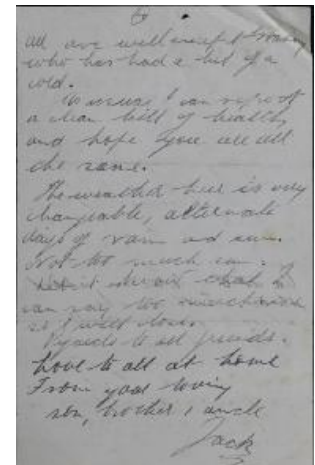 6
all are well except
who has had a bit of a
cold.
As usual I can report
a clean bill of health
and hope you are all
the same.
The weather here is very
changeable, alternate
days of rain and sun.
Not too much sun.
about that I
can say too much
so I will close.
Regards to all friends.
Love to all at home
From your loving
son, brother & uncle
Jack